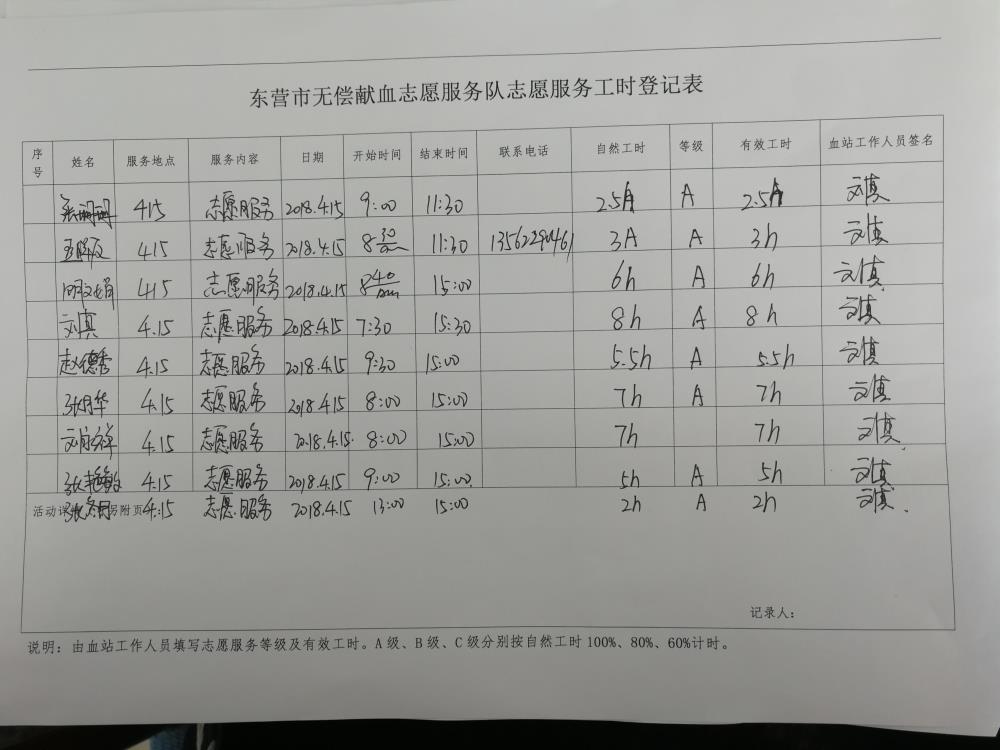 东营市无偿献血志愿服务队志愿服务工时登记表
序号 姓名 服务地点 服务内容 日期 开始时间 结束时间 联系电话 自然工时 等级 有效工时 血站工作人员签名
415 志愿服务 2018.4.15 9:00 11:30 2.5h A 2.5h 刘真
4.15 志愿服务 2018.4.15 8 30 11:30 13562290461 3h A 3h 刘真
4.15 志愿服务 2018.4.15 8 40 15:00 6h A 6h 刘真
刘真 4.15 志愿服务 2018.4.15 7:30 15:30 8h A 8h 刘真
赵德秀 4.15 志愿服务 2018.4.15 9:30 15:00 5.5h A 5.5h 刘真
张月华 4.15 志愿服务 2018.4.15 8:00 15:00 7h A 7h 刘真
4.15 志愿服务 2018.4.15. 8:00 15:00 7h 7h 刘真.
4.15 志愿服务 2018.4.15 9:00 15:00 5h A 5h 刘真
4.15 志愿服务 2018.4.15 13:00 15:00 2h A 2h 刘真.
活动详 另附页
记录人：
说明：由血站工作人员填写志愿服务等级及有效工时。A级、B级、C级分别按自然工时100%、80%、60%计时。